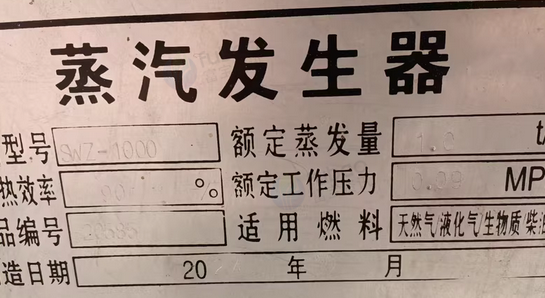 蒸汽发生器
型号 SWZ-1000 额定蒸发量 1.0 t/
热效率 90 % 额定工作压力 0.09 MP
品编号 适用燃料 天然气/液化气/生物质/柴油
造日期 20 年 月